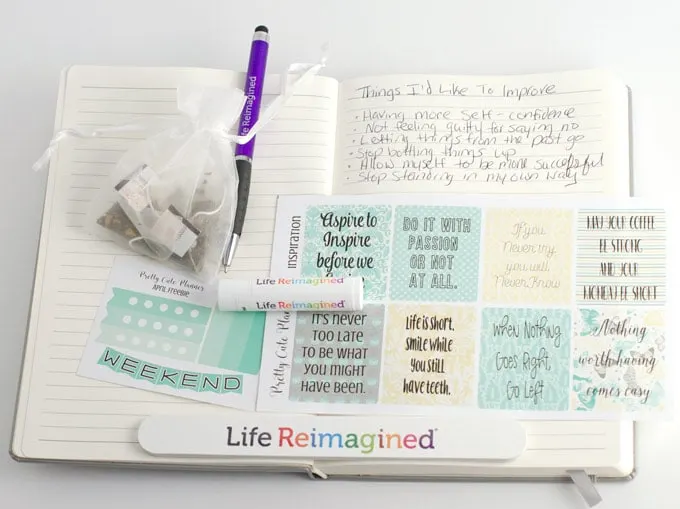 Things I'd Like To Improve
• Having more self-confidence
• Not feeling guilty for saying no
• Letting things from the past go
• Stop bottling things up
• Allow myself to be more successful
• Stop standing in my own way
Life Reimagined
INSPIRATION
Aspire to
Inspire
before we
DO IT WITH
PASSION
OR NOT
AT ALL.
If you
Never try
you will
Never Know
MAY YOUR COFFEE
BE STRONG
AND YOUR
MONDAY BE SHORT
Pretty Cute Planner
APRIL FREEBIE
WEEKEND
Life Reimagined
Life Reimagined
Pretty Cute Plan
IT'S NEVER
TOO LATE
TO BE WHAT
YOU MIGHT
HAVE BEEN.
Life is short,
smile while
you still
have teeth.
When Nothing
Goes Right,
Go Left
Nothing
worth having
comes easy
Life Reimagined